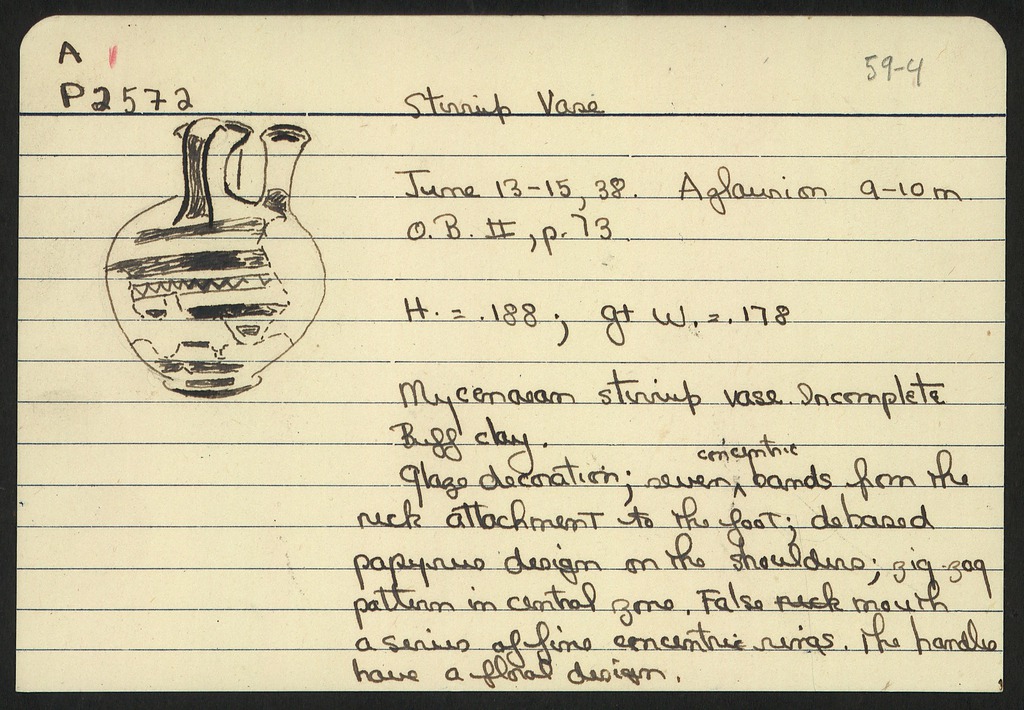 A
59-4
P2572
Stirrup Vase
June 13-15, 38. Aglaurion 9-10 m
O.B. II, p. 73
H. = .188; gt W. = .178
Mycenaean stirrup vase. Incomplete
Buff clay.
Glaze decoration; seven ^concentric bands from the
neck attachment to the foot; debased
papyrus design on the shoulders; zig-zag
pattern in central zone. False neck mouth
a series of fine concentric rings. The handles
have a floral design.